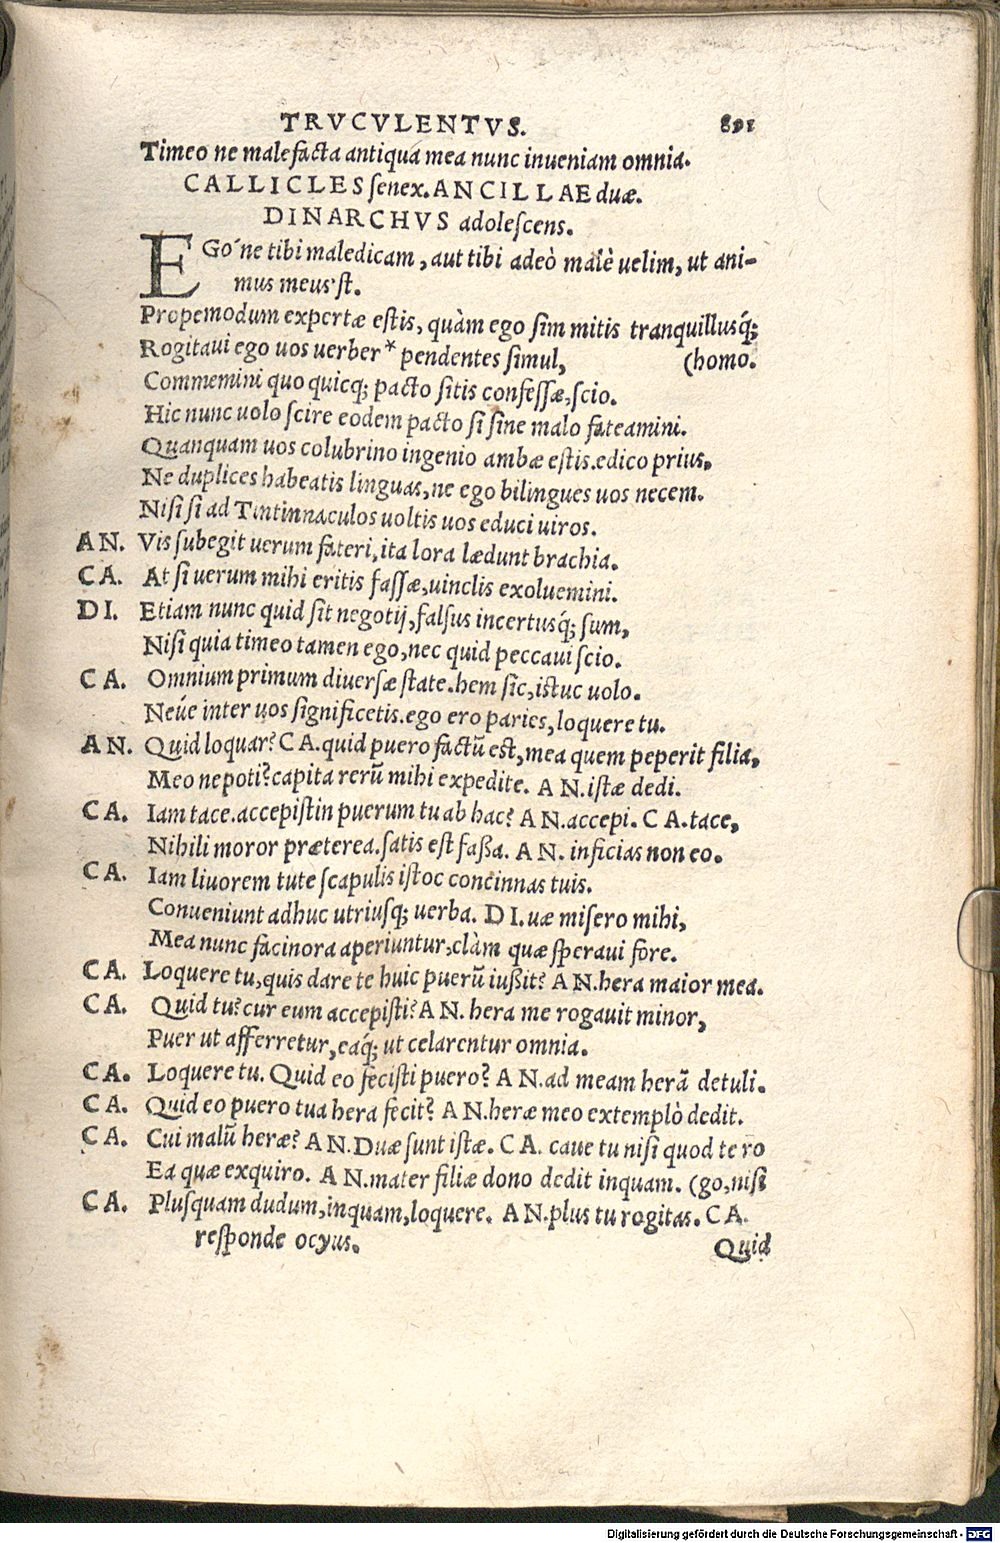 TRVCVLENTVS. 891
Timeo ne malefacta antiqua mea nunc inueniam omnia.
CALLICLES ſenex. ANCILLAE duæ.
DINARCHVS adoleſcens.
EGo´ne tibi maledicam, aut tibi adeò malè uelim, ut ani-
mus meus'ſt.
Propemodum expertæ eſtis, quàm ego ſim mitis tranquillusq́;
Rogitaui ego uos uerber* pendentes ſimul, (homo.
Commemini quo quicq; pacto ſitis confeſſæ, ſcio.
Hic nunc uolo ſcire eodem pacto ſi ſine malo fateamini.
Quanquam uos colubrino ingenio ambæ eſtis. edico prius,
Ne duplices habeatis linguas, ne ego bilingues uos necem.
Niſi ſi ad Tintinnaculos uoltis uos educi uiros.
AN. Vis ſubegit uerum fateri, ita lora lædunt brachia.
CA. At ſi uerum mihi eritis faſſæ, uinclis exoluemini.
DI. Etiam nunc quid ſit negotij, falſus incertusq́; ſum,
Niſi quia timeo tamen ego, nec quid peccaui ſcio.
CA. Omnium primum diuerſæ ſtate. hem ſic, iſtuc uolo.
Neúe inter uos ſignificetis. ego ero paries, loquere tu.
AN. Quid loquar? CA. quid puero factū eſt, mea quem peperit filia,
Meo nepoti? capita rerū mihi expedite. AN. iſtæ dedi.
CA. Iam tace. accepiſtin puerum tu ab hac? AN. accepi. CA. tace,
Nihili moror præterea. ſatis eſt faßa. AN. inficias non eo.
CA. Iam liuorem tute ſcapulis iſtoc concinnas tuis.
Conueniunt adhuc utriusq; uerba. DI. uæ miſero mihi,
Mea nunc facinora aperiuntur, clàm quæ ſperaui fore.
CA. Loquere tu, quis dare te huic puerū iußit? AN. hera maior mea.
CA. Quid tu? cur eum accepiſti? AN. hera me rogauit minor,
Puer ut afferretur, eaq́; ut celarentur omnia.
CA. Loquere tu. Quid eo feciſti puero? AN. ad meam herā detuli.
CA. Quid eo puero tua hera fecit? AN. heræ meo extemplò dedit.
CA. Cui malū heræ? AN. Duæ ſunt iſtæ. CA. caue tu niſi quod te ro
Ea quæ exquiro. AN. mater filiæ dono dedit inquam. (go, niſi
CA. Pluſquam dudum, inquam, loquere. AN. plus tu rogitas. CA.
reſponde ocyus. Quid
Digitalisierung gefördert durch die Deutsche Forschungsgemeinschaft - DFG